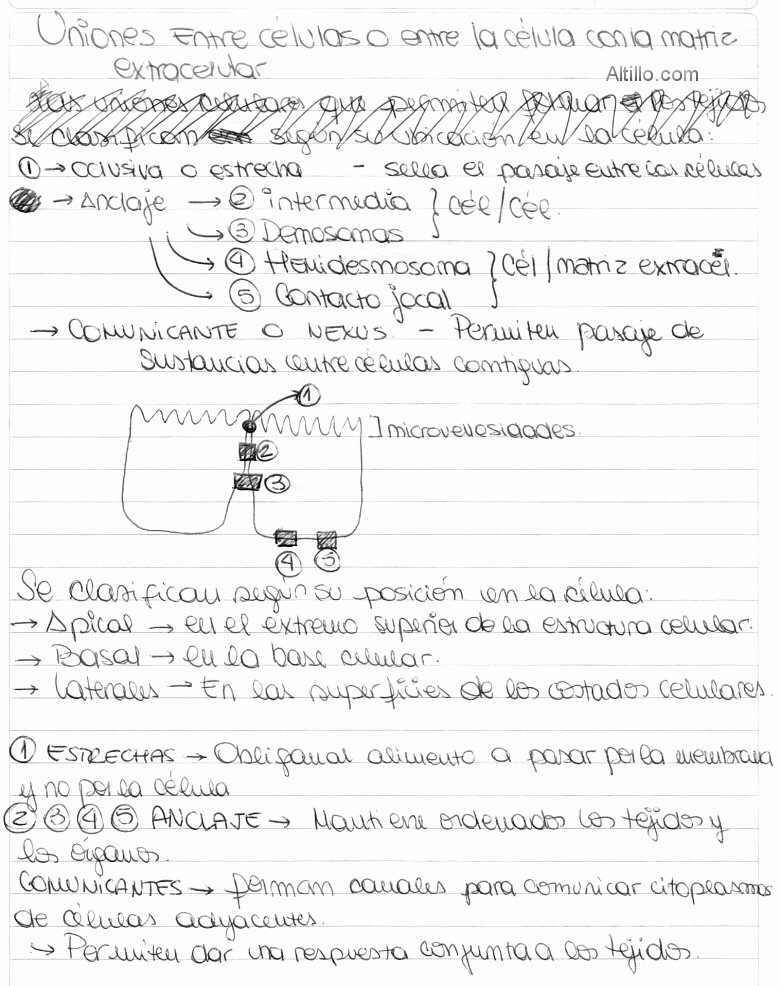 Uniones Entre células o entre la célula con la matriz
extracelular
Altillo.com
Las uniones celulares que permiten formar los tejidos
se clasifican según su ubicación en la célula:
① → Oclusiva o estrecha - sella el pasaje entre las células
→ Anclaje → ② intermedia } cél/cél.
→ ③ Demosomas
→ ④ Hemidesmosoma } cél/matriz extracél.
→ ⑤ Contacto focal
→ COMUNICANTE O NEXUS. - Permiten pasaje de
sustancias entre células contiguas.
①
] microvellosidades.
②
③
④ ⑤
Se clasifican según su posición en la célula:
→ Apical → en el extremo superior de la estructura celular.
→ Basal → en la base celular.
→ Laterales → En las superficies de los costados celulares.
① ESTRECHAS → Obligan al alimento a pasar por la membrana
y no por la célula
② ③ ④ ⑤ ANCLAJE → Mantiene ordenados los tejidos y
los órganos.
COMUNICANTES → forman canales para comunicar citoplasmas
de células adyacentes.
↳ Permiten dar una respuesta conjunta a los tejidos.